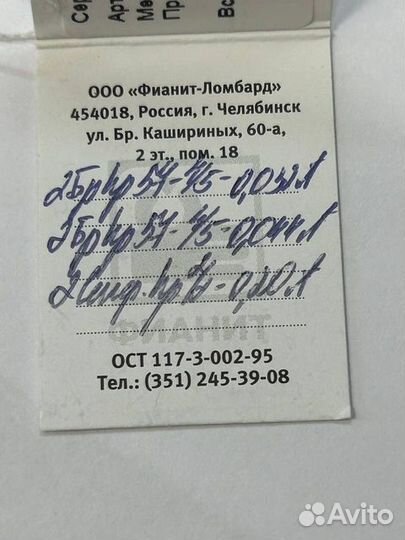 Сер
Арт
Ме
Пр
Вс
ООО «Фианит-Ломбард»
454018, Россия, г. Челябинск
ул. Бр. Кашириных, 60-а,
2 эт., пом. 18
2Бр кр57-4/5-0,032л
2Бр кр57-4/5-0,044л
ФИАНИТ
ОСТ 117-3-002-95
Тел.: (351) 245-39-08
Avito